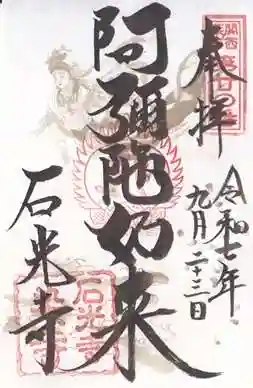 奉拝
令和七年
九月二十三日
阿彌陀如来
石光寺
関西
石光寺